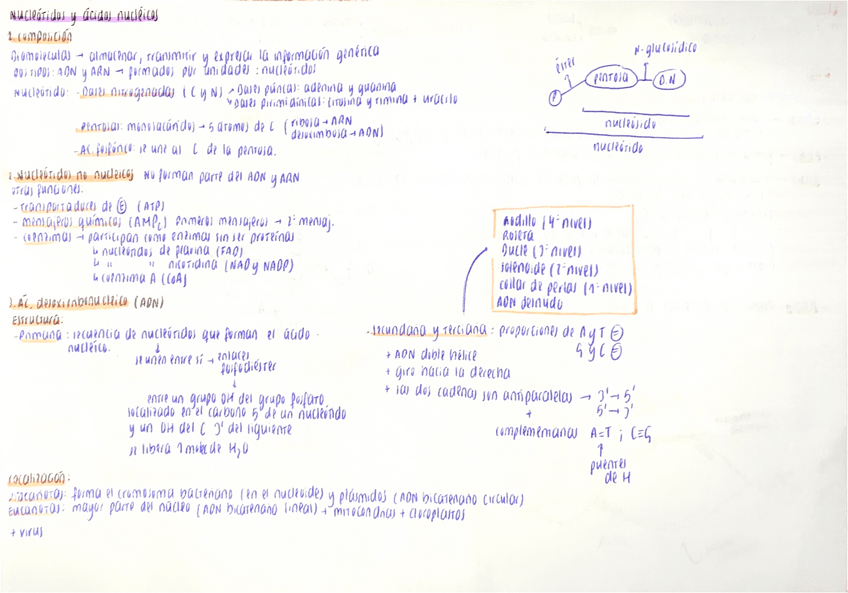 Nucleótidos y ácidos nucleicos
1. composición
Biomoléculas → almacenar, transmitir y expresar la información genética
Dos tipos: ADN y ARN → formados por unidades: nucleótidos
Nucleótido: - Bases nitrogenadas (C y N) → Bases púricas: adenina y guanina
→ Bases pirimidínicas: citosina y timina + uracilo
- Pentosas: monosacáridos → 5 átomos de C (ribosa → ARN
desoxirribosa → ADN)
- Ac. fosfórico: se une al C de la pentosa.
éster
N-glucosídico
P
pentosa
B.N
nucleósido
nucleótido
2. Nucleótidos no nucleicos No forman parte del ADN y ARN
otras funciones.
- transportadores de E (ATP)
- mensajeros químicos (AMPc) Primeros mensajeros → 2º mensaj.
- coenzimas → participan como enzimas sin ser proteínas
↳ nucleótidos de flavina (FAD)
↳ " " nicotidina (NAD y NADP)
↳ coenzima A (CoA)
Rodillo (4º nivel)
Roseta
Bucle (3º nivel)
solenoide (2º nivel)
collar de perlas (1º nivel)
ADN desnudo
3. Ac. desoxirribonucleico (ADN)
Estructura:
- Primaria: secuencia de nucleótidos que forman el ácido
nucleico.
se unen entre sí → enlaces
fosfodiéster
entre un grupo OH del grupo fosfato
localizado en el carbono 5' de un nucleótido
y un OH del C 3' del siguiente
se libera 1 molec de H2O
- secundaria y terciaria: proporciones de A y T =
G y C =
+ ADN doble hélice
+ giro hacia la derecha
+ las dos cadenas son antiparalelas → 3' → 5'
5' → 3'
+
complementarias A=T ; C≡G
↑
puentes
de H
Localización:
Procariotas: forma el cromosoma bacteriano (en el nucleoide) y plásmidos (ADN bicatenario circular)
Eucariotas: mayor parte del núcleo (ADN bicatenario lineal) + mitocondrias + cloroplastos
+ virus